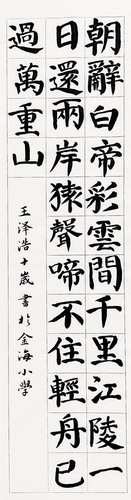 朝辭白帝彩雲間千里江陵一
日還兩岸猿聲啼不住輕舟已
過萬重山
王泽浩十歲書於金海小學